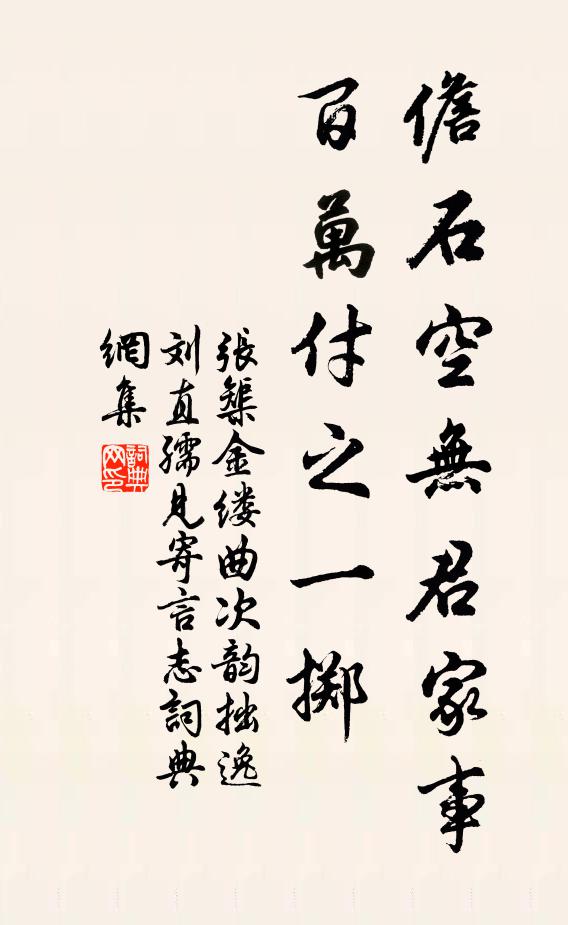 儋石空無君家事
百萬付之一擲
張榘金缕曲次韵拙逸
刘直孺見寄言志詞典
網集
詞典網印